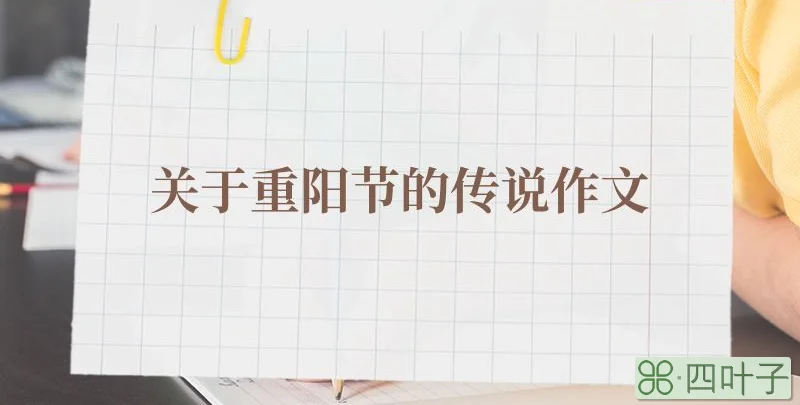 关于重阳节的传说作文
四叶子